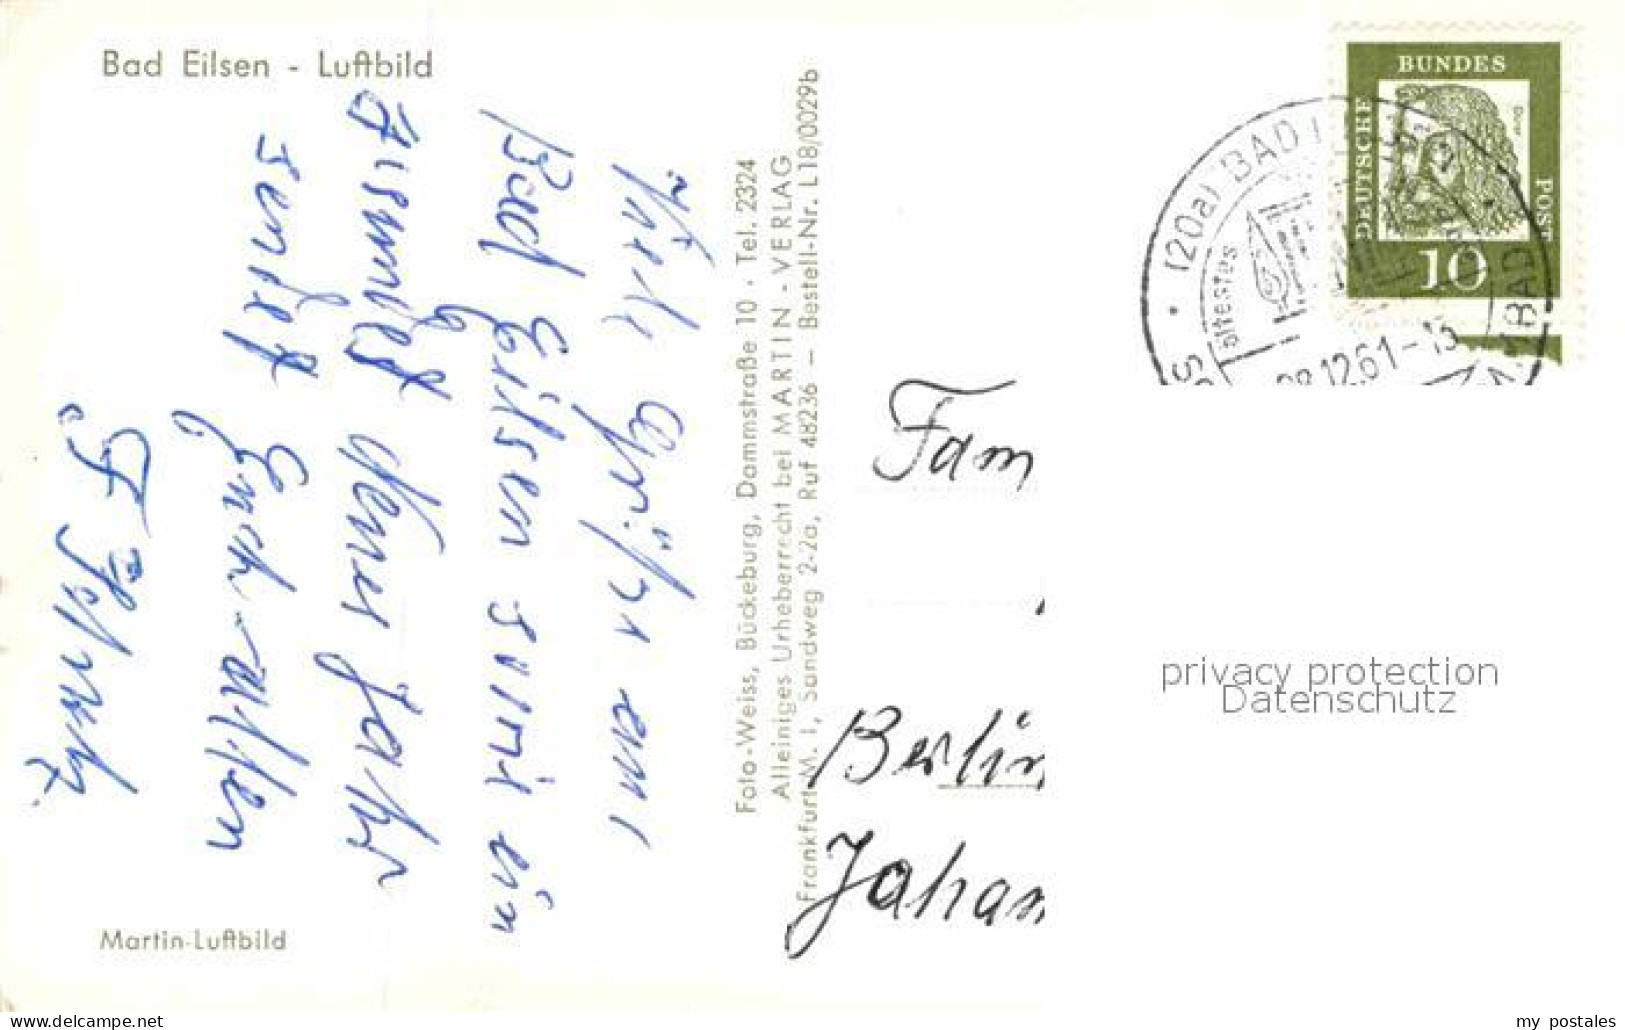 Bad Eilsen - Luftbild
Viele Grüße aus
Bad Eilsen und ein
gesundes Neues Jahr
sendet Euch allen
F.
Martin-Luftbild
Foto-Weiss, Bückeburg, Dammstraße 10 · Tel. 2324
Alleiniges Urheberrecht bei MARTIN - VERLAG
Frankfurt M. 1, Sandweg 2-2a, Ruf 48236 — Bestell-Nr. L18/0029b
DEUTSCHE
BUNDES
POST
Dürer
10
(20a) BAD
ältestes
12.61-13
Fam
Berlin
Johan
privacy protection
Datenschutz
www.delcampe.net
my_postales